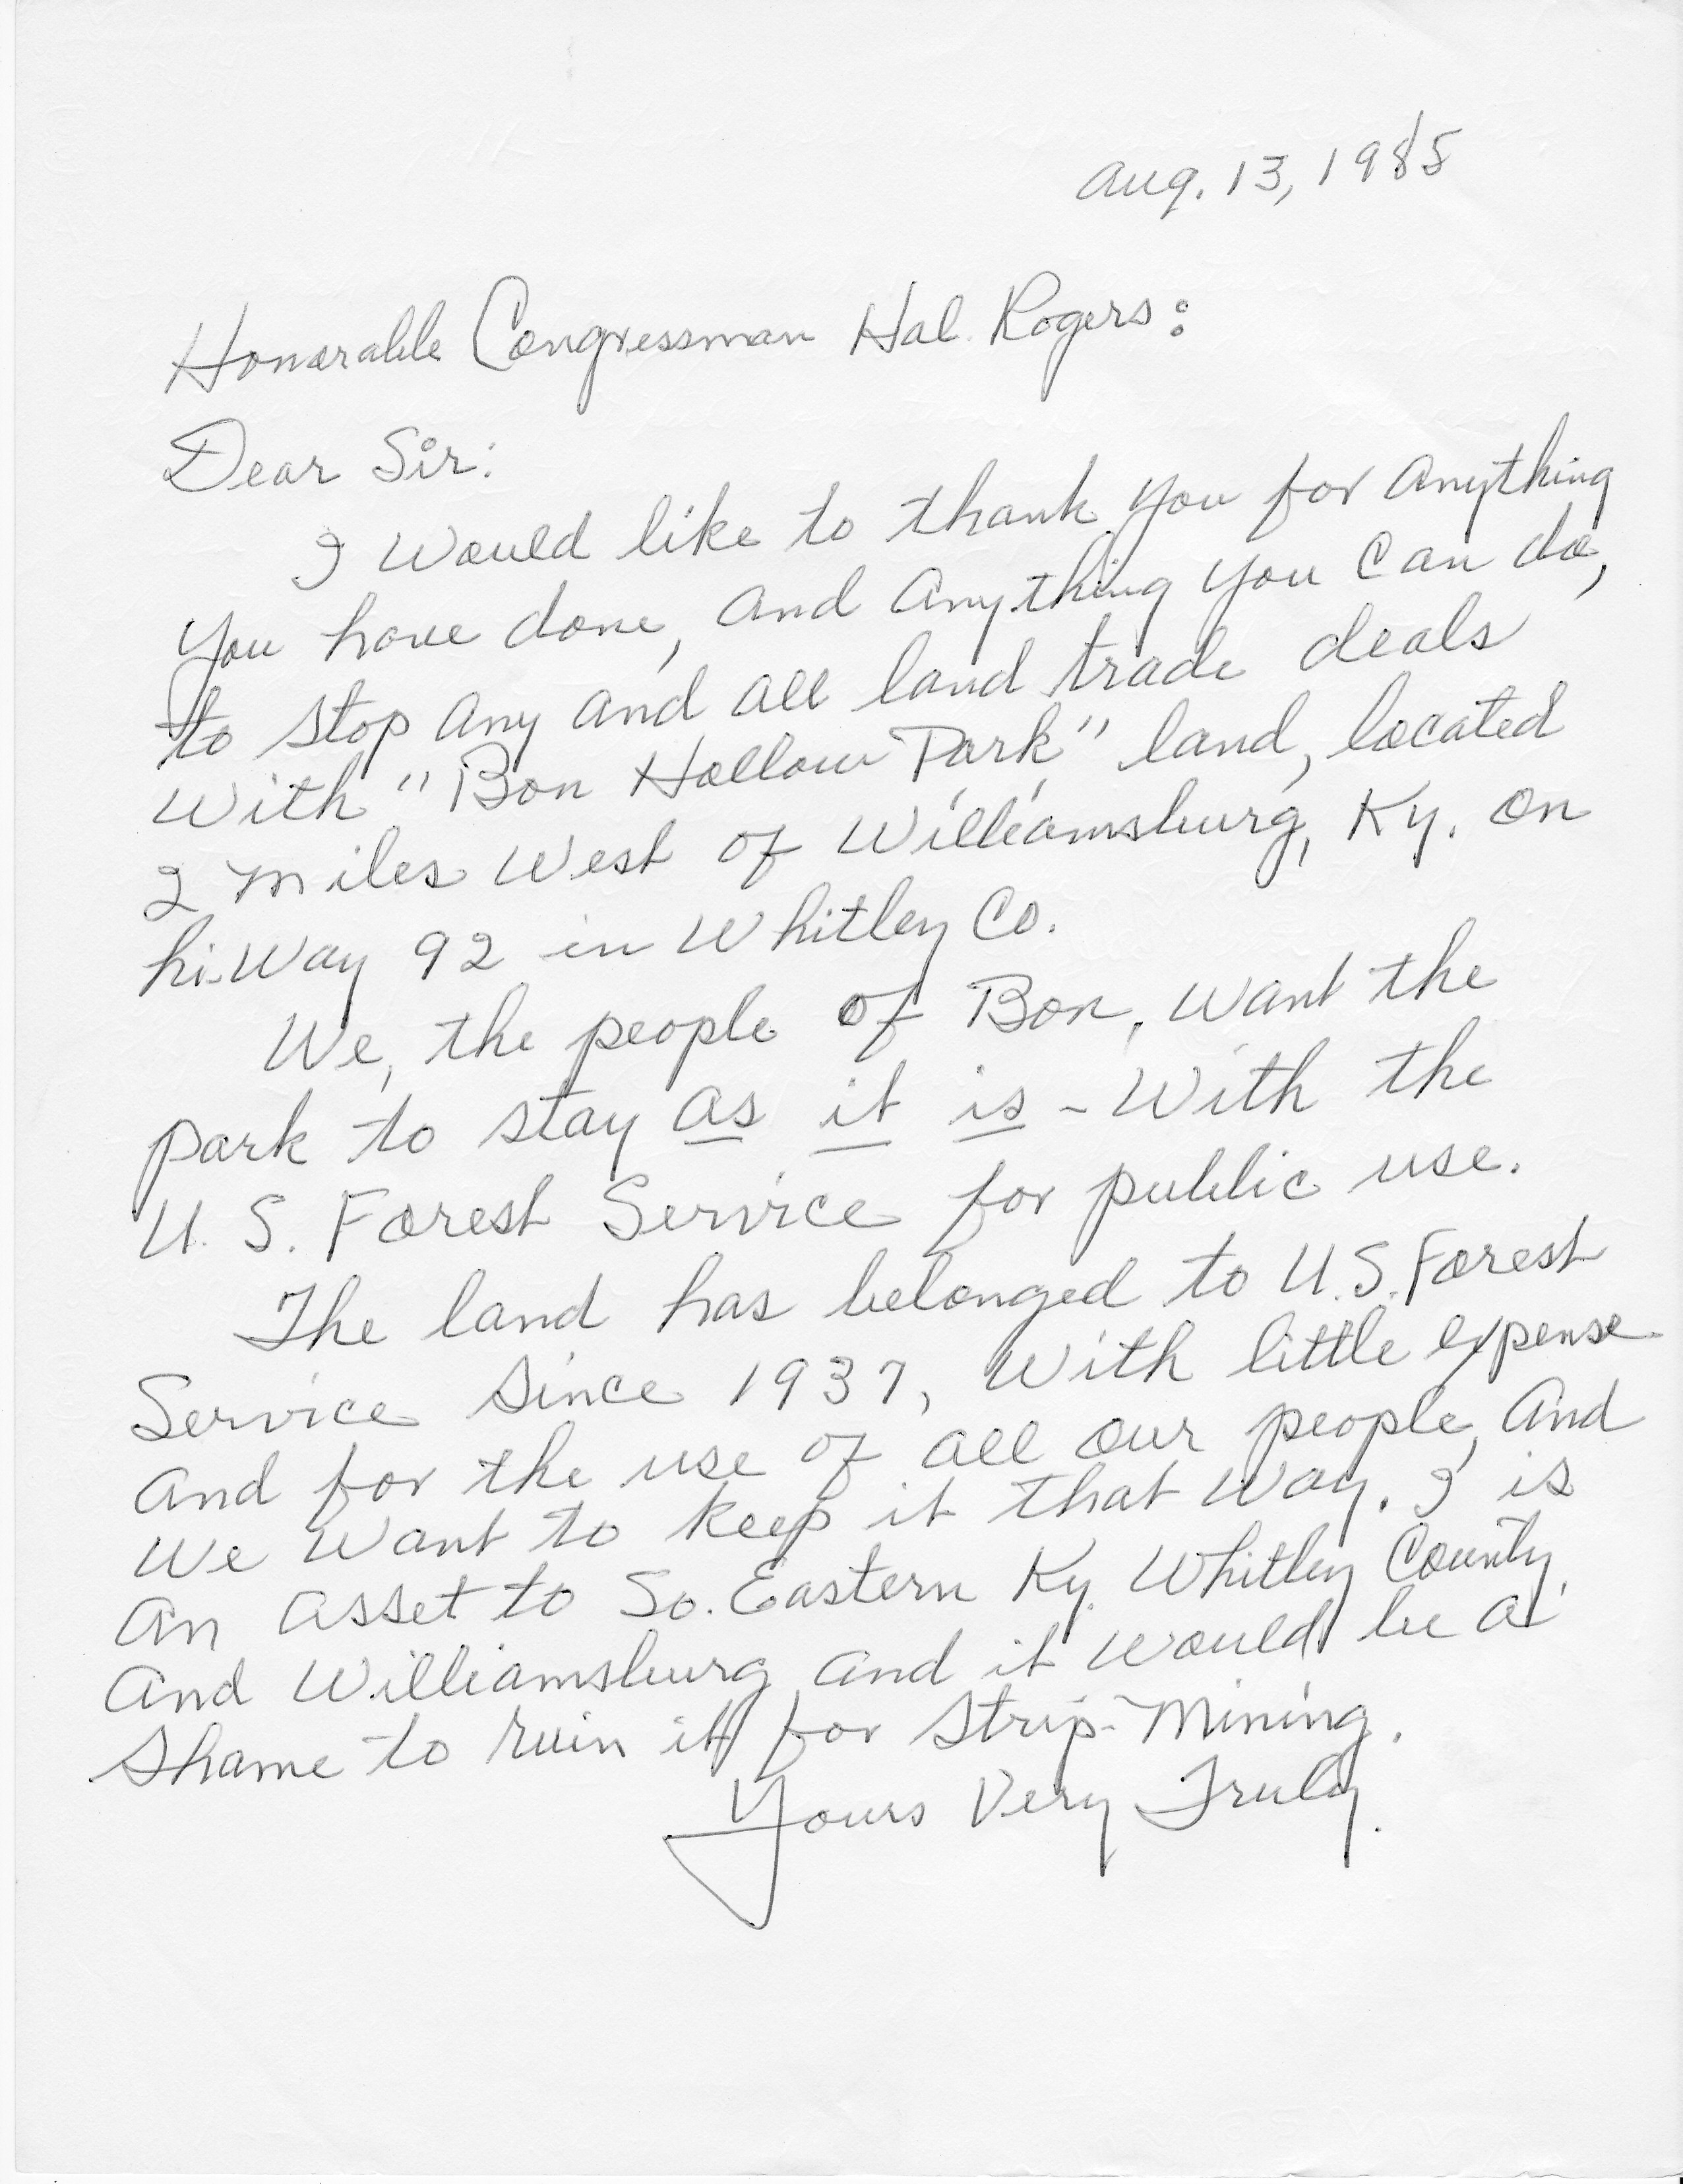 Aug. 13, 1985
Honorable Congressman Hal Rogers:
Dear Sir:
I would like to thank you for anything
you have done, and anything you can do,
to stop any and all land trade deals
with "Bon Hollow Park" land, located
2 miles West of Williamsburg, Ky. on
hi-way 92 in Whitley Co.
We, the people of Bon, want the
park to stay as it is - with the
U.S. Forest Service for public use.
The land has belonged to U.S. Forest
Service since 1937, with little expense
and for the use of all our people, and
we want to keep it that way. I is
an asset to So. Eastern Ky. Whitley County,
and Williamsburg and it would be a
shame to ruin it for strip-mining.
Yours Very Truly.